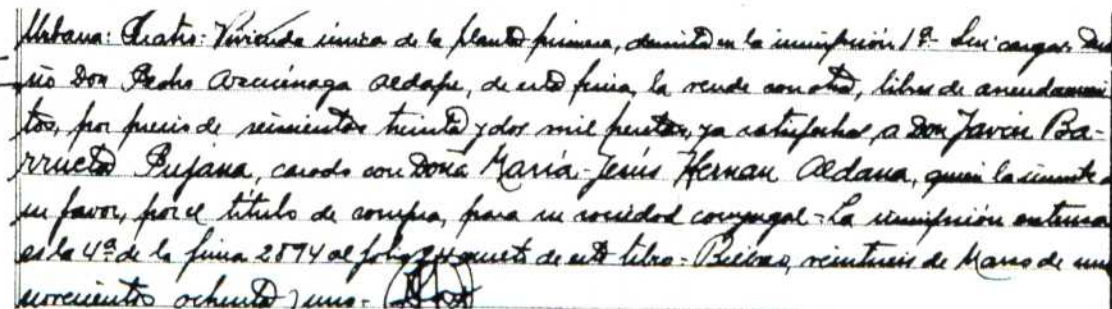 Urbana: Cuatro: Vivienda única de la planta primera, descrita en la inscripción 1ª- Sin cargas Due
ño Don Pedro Arruénaga Aldape, de esta finca, la vende con otra, libres de arrendamien
tos, por precio de seiscientas treinta y dos mil pesetas, ya satisfechas a Don Javier Ba-
rrueta Pujana, casado con Doña María-Jesús Hernan Aldana, quien la inscribe a
su favor, por el título de compra, para su sociedad conyugal- La inscripción extensa
es la 4ª de la finca 2894 al folio de este libro- Bilbao, veintiseis de Marzo de mil
novecientos ochenta y uno-